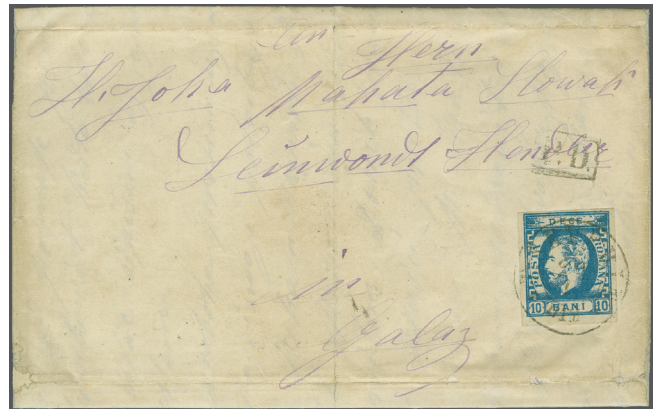 An
Herrn
H. Joha Mahata Slowak
Leinwandt Händler
P.D.
in
Galaz
DECE
POSTA ROMANA
10 BANI 10